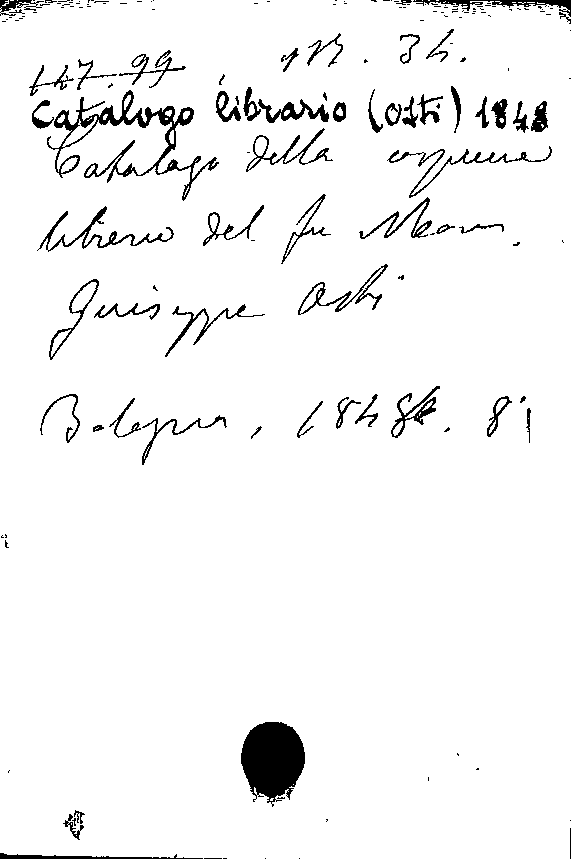 147.99
Catalogo librario (Osti) 1848
Catalogo della copiosa
libreria del fu Mons.
Giuseppe Osti
Bologna, 1848. 8°